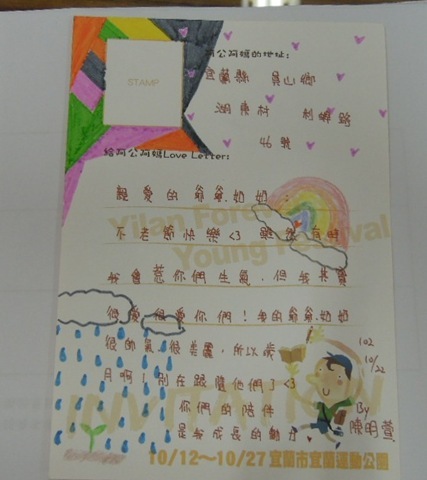 STAMP
阿公阿嬤的地址:
宜蘭縣 員山鄉
湖東村 蜊埤路
46號
給阿公阿嬤Love Letter:
親愛的爺爺.奶奶:
不老節快樂<3 雖然有時
我會惹你們生氣,但我其實
很愛很愛你們!我的爺爺.奶奶
很帥氣、很美麗,所以歲
月啊!別在跟隨他們3<3
你們的陪伴
是我成長的動力
102
10/22
By
陳明萱
Yilan Forever
Young Festival
INVITATION
10/12～10/27 宜蘭市宜蘭運動公園